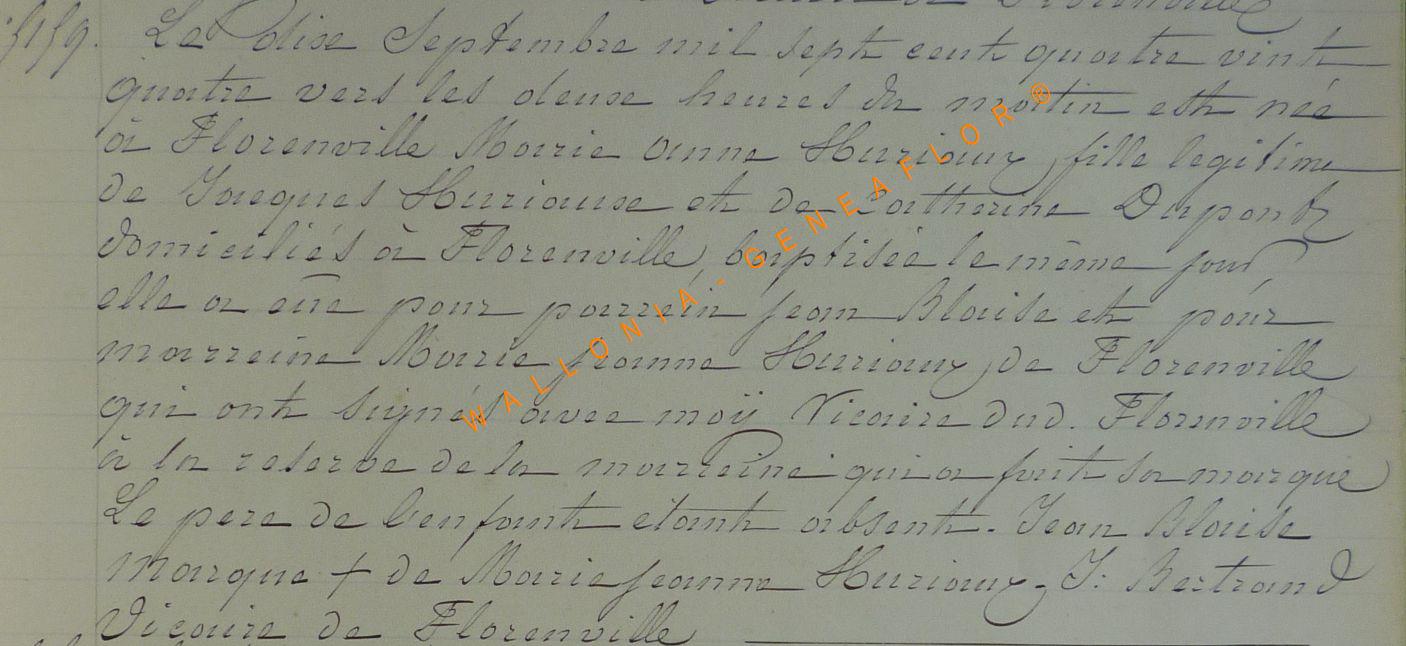 Le dixe Septembre mil sept cent quatre vint
quatre vers les deuxe heures du matin est née
à Florenville Marie Anne Huriaux, fille legitime
de Jacques Huriauxe et de Catherine Dupont
domiciliés à Florenville, baptisée le même jour,
elle a eûe pour parrein Jean Blaise et pour
marreine Marie Jeanne Huriaux, de Florenville
qui ont signés avec moÿ Vicaire dud. Florenville
à la reserve de la marreine qui a fait sa marque
Le pere de l'enfant etant absent. Jean Blaise
marque + de Marie Jeanne Huriaux. J: Bertrand
Vicaire de Florenville
WALLONIA - GENEAFLOR ®